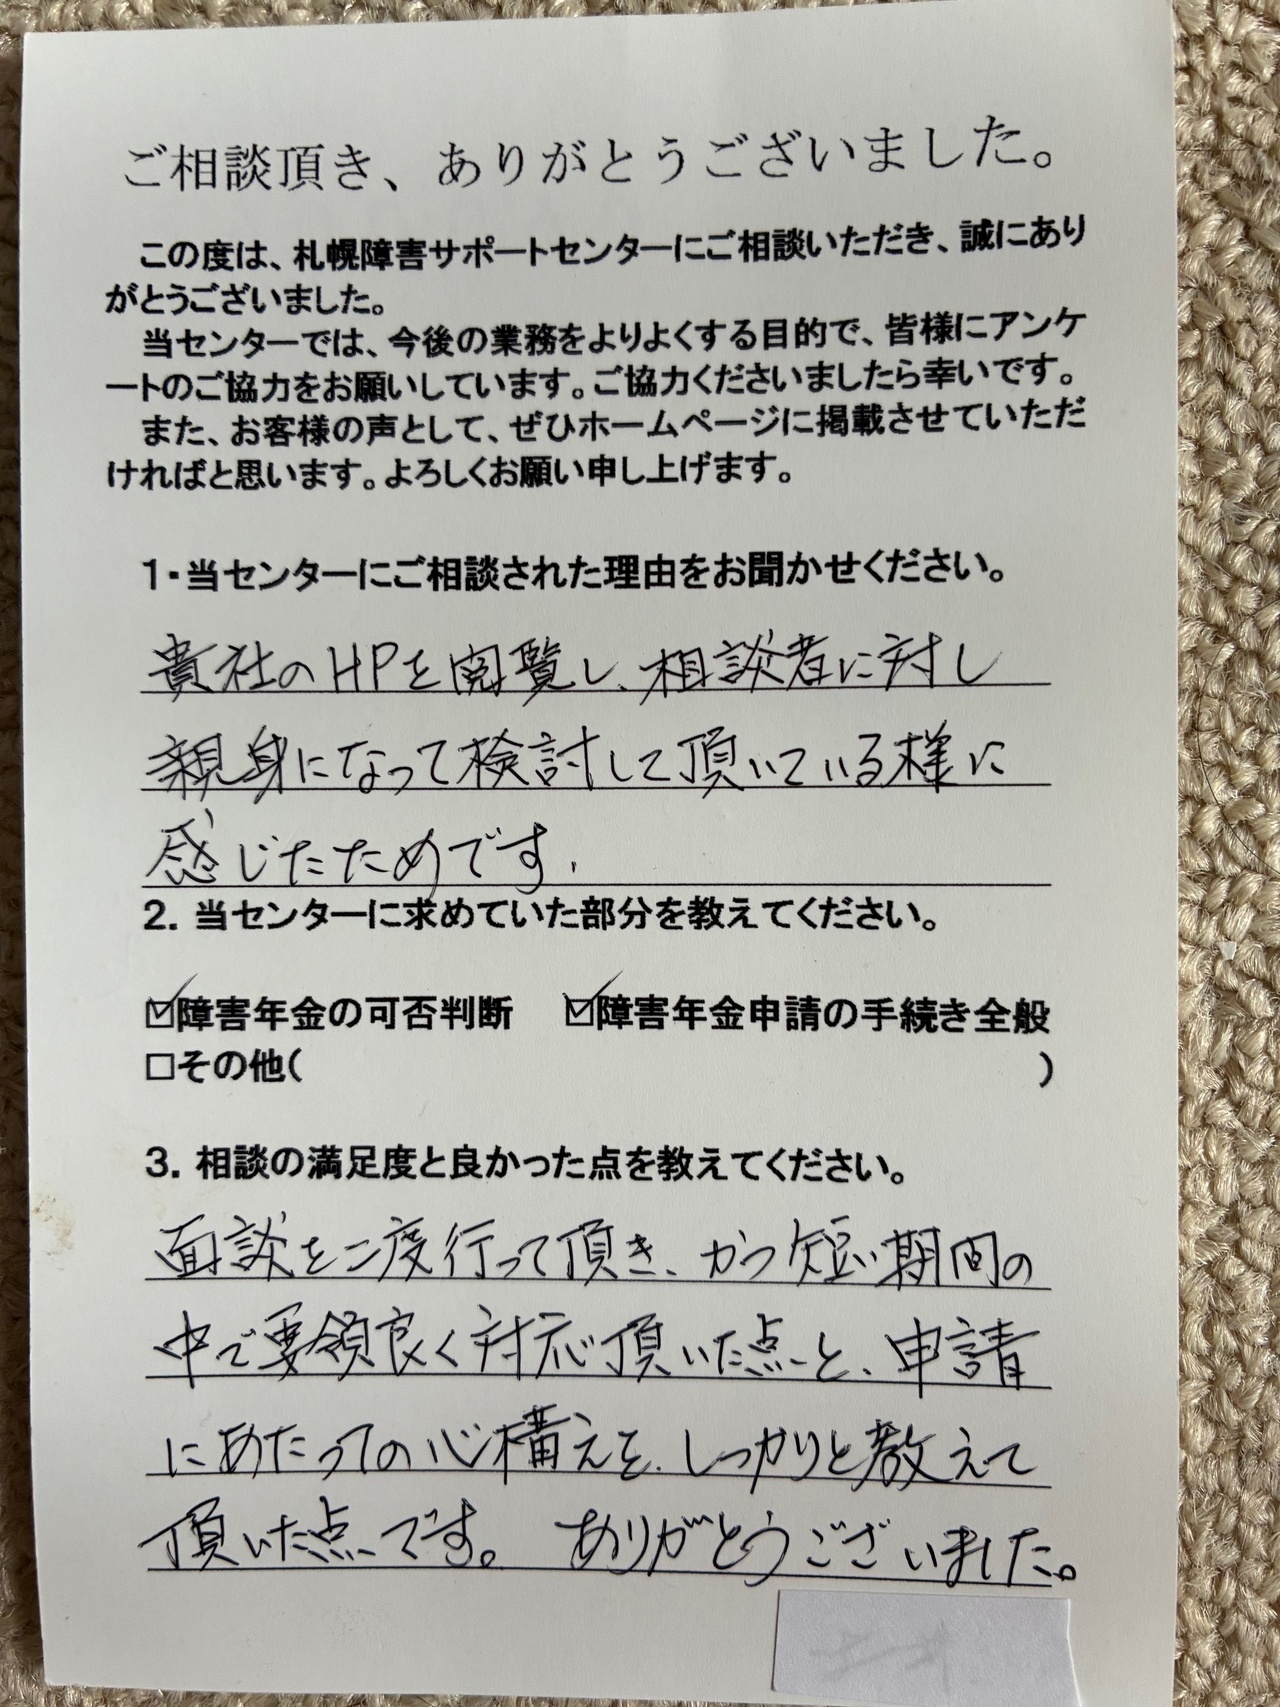 ご相談頂き、ありがとうございました。
この度は、札幌障害サポートセンターにご相談いただき、誠にあり
がとうございました。
当センターでは、今後の業務をよりよくする目的で、皆様にアンケ
ートのご協力をお願いしています。ご協力くださいましたら幸いです。
また、お客様の声として、ぜひホームページに掲載させていただ
ければと思います。よろしくお願い申し上げます。
1・当センターにご相談された理由をお聞かせください。
貴社のHPを閲覧し、相談者に対し
親身になって検討して頂いている様に
感じたためです.
2. 当センターに求めていた部分を教えてください。
☑障害年金の可否判断 ☑障害年金申請の手続き全般
□その他( )
3. 相談の満足度と良かった点を教えてください。
面談を二度行って頂き、かつ短い期間の
中で要領良く対応頂いた点と、申請
にあたっての心構えを、しっかりと教えて
頂いた点です。 ありがとうございました。